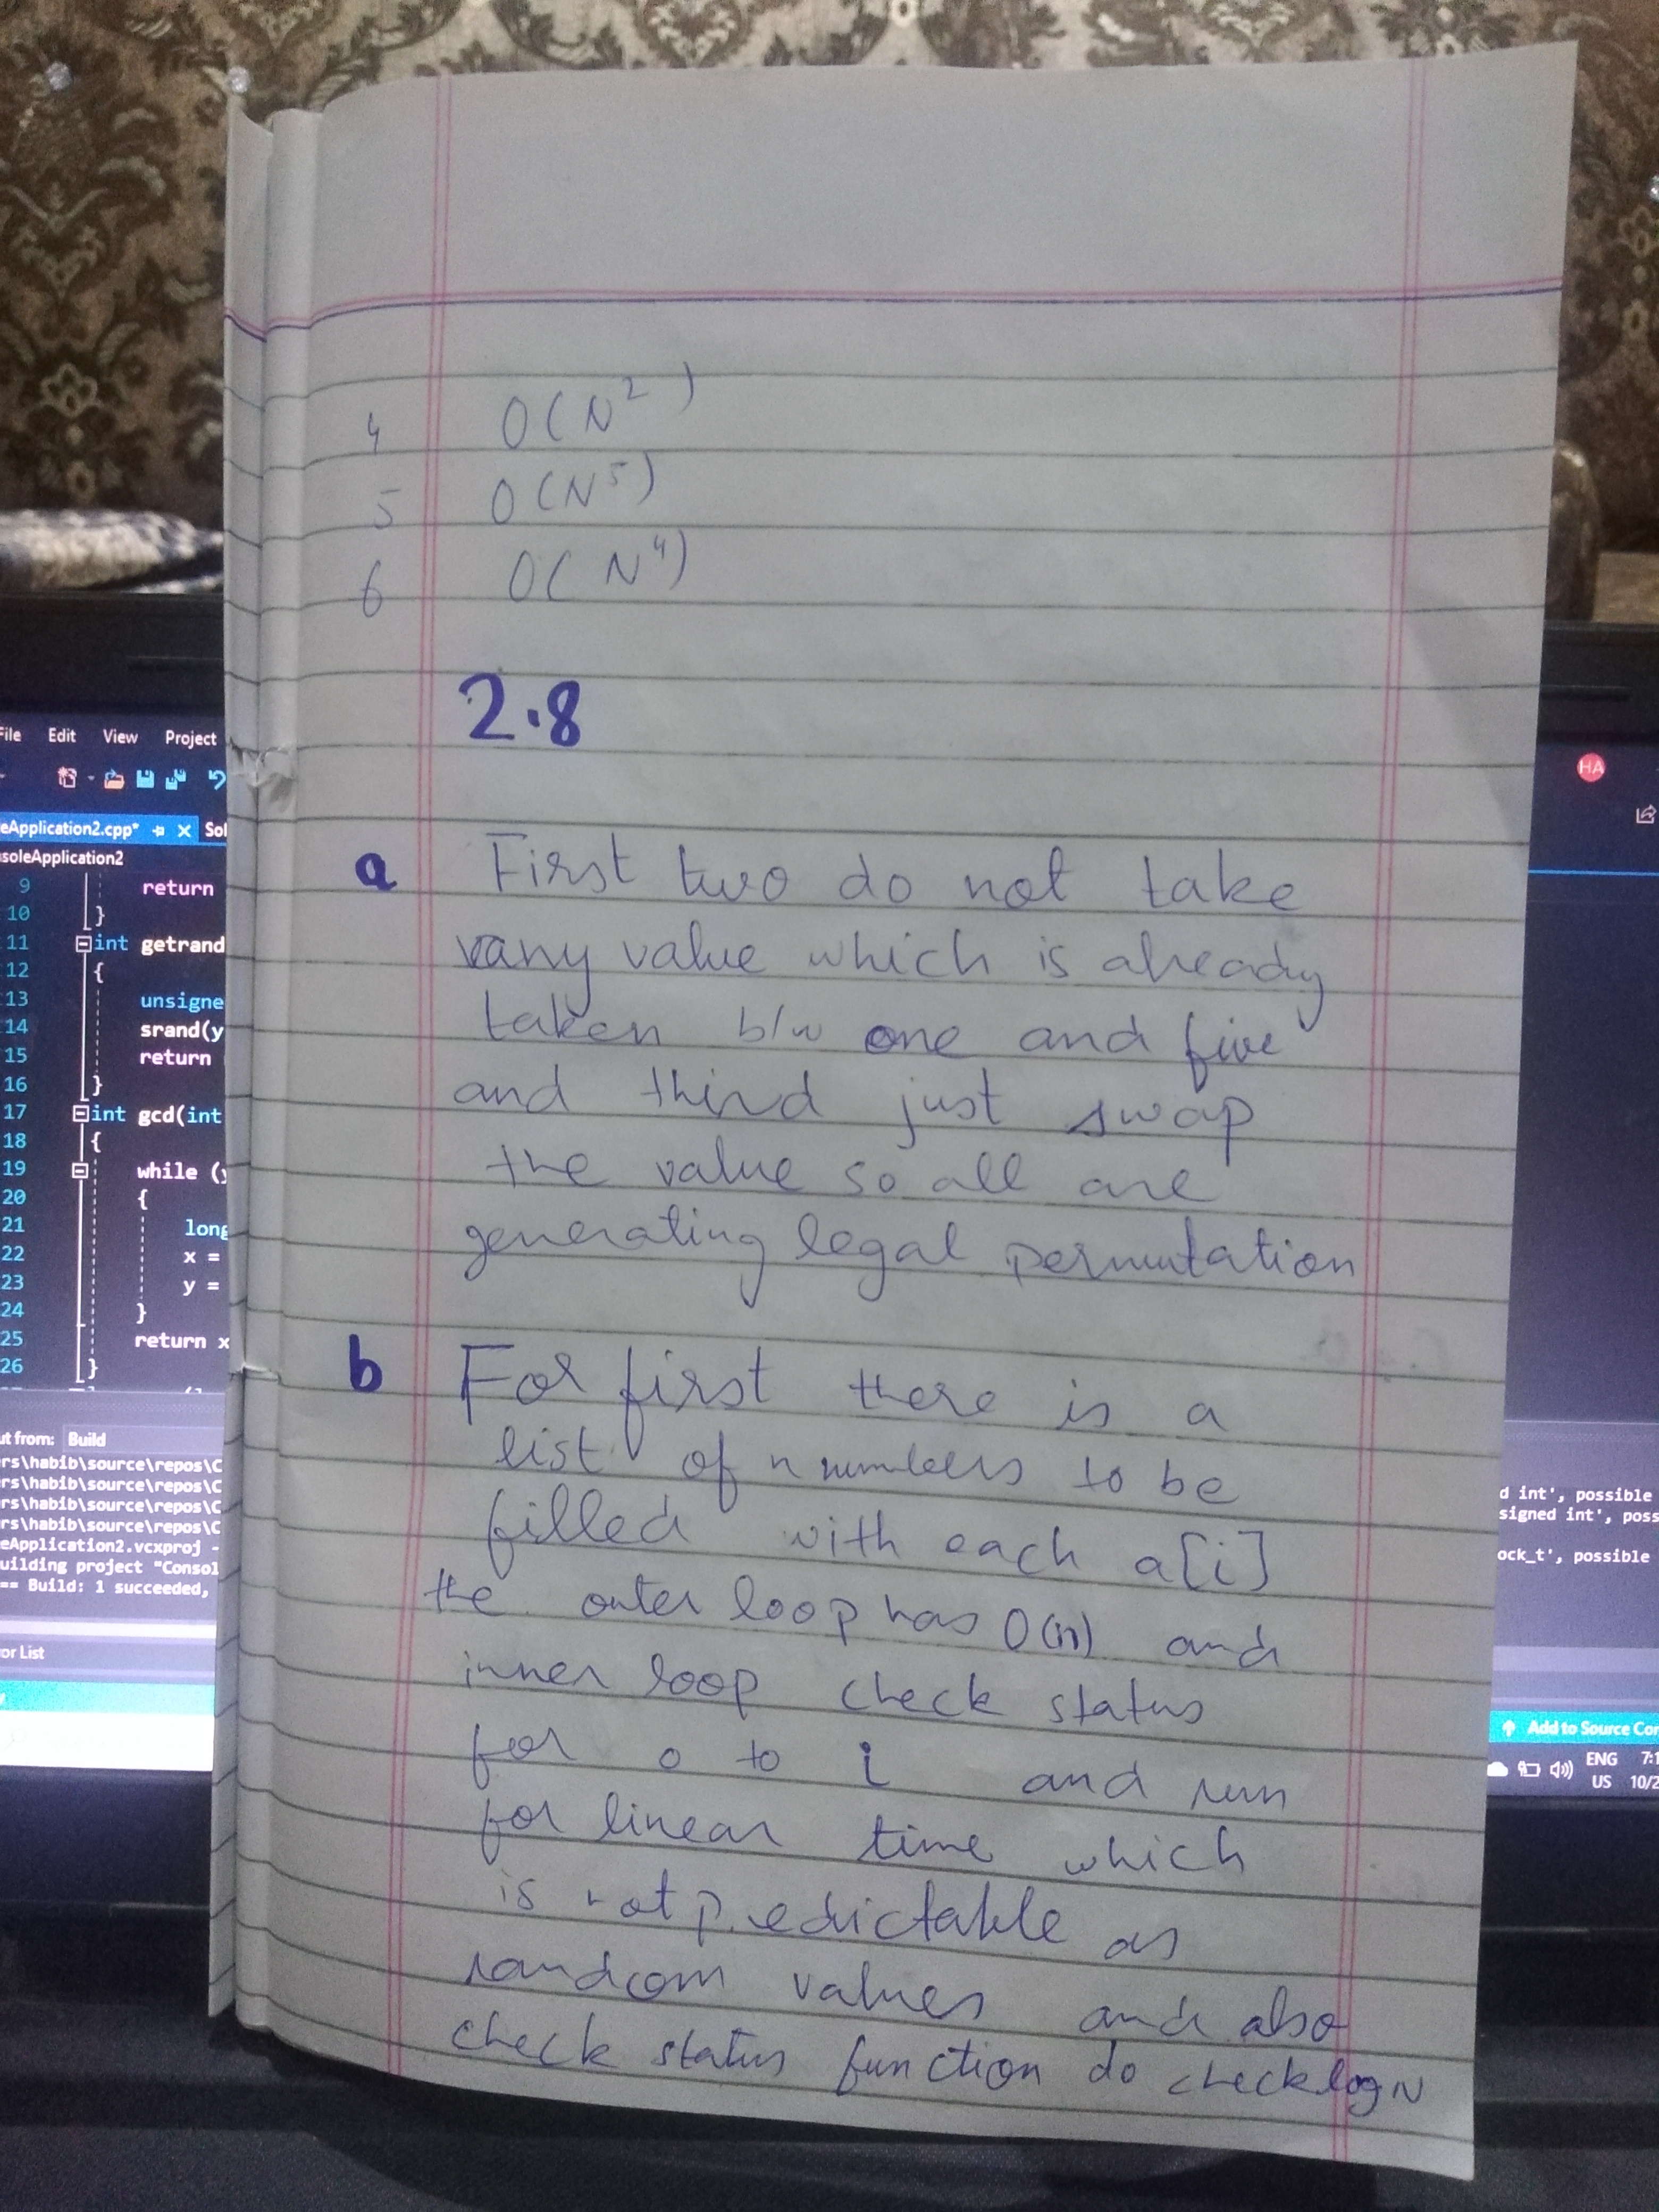 4 O(N²)
5 O(N⁵)
6 O(N⁴)
2.8
a First two do not take
any value which is already
taken b/w one and five
and third just swap
the value so all are
generating legal permutation
b For first there is a
list of n numbers to be
filled with each a[i]
the outer loop has O(n) and
inner loop check status
for 0 to i and run
for linear time which
is not predictable as
random values and also
check status function do check log N
File Edit View Project
eApplication2.cpp* Sol
soleApplication2
9 return
10 }
11 int getrand
12 {
13 unsigne
14 srand(y
15 return
16 }
17 int gcd(int
18 {
19 while (y
20 {
21 long
22 x =
23 y =
24 }
25 return x
26 }
ut from: Build
rs\habib\source\repos\C
rs\habib\source\repos\C
rs\habib\source\repos\C
rs\habib\source\repos\C
eApplication2.vcxproj -
uilding project "Consol
== Build: 1 succeeded,
or List
HA
d int', possible
signed int', poss
ock_t', possible
Add to Source Con
ENG 7:1
US 10/2